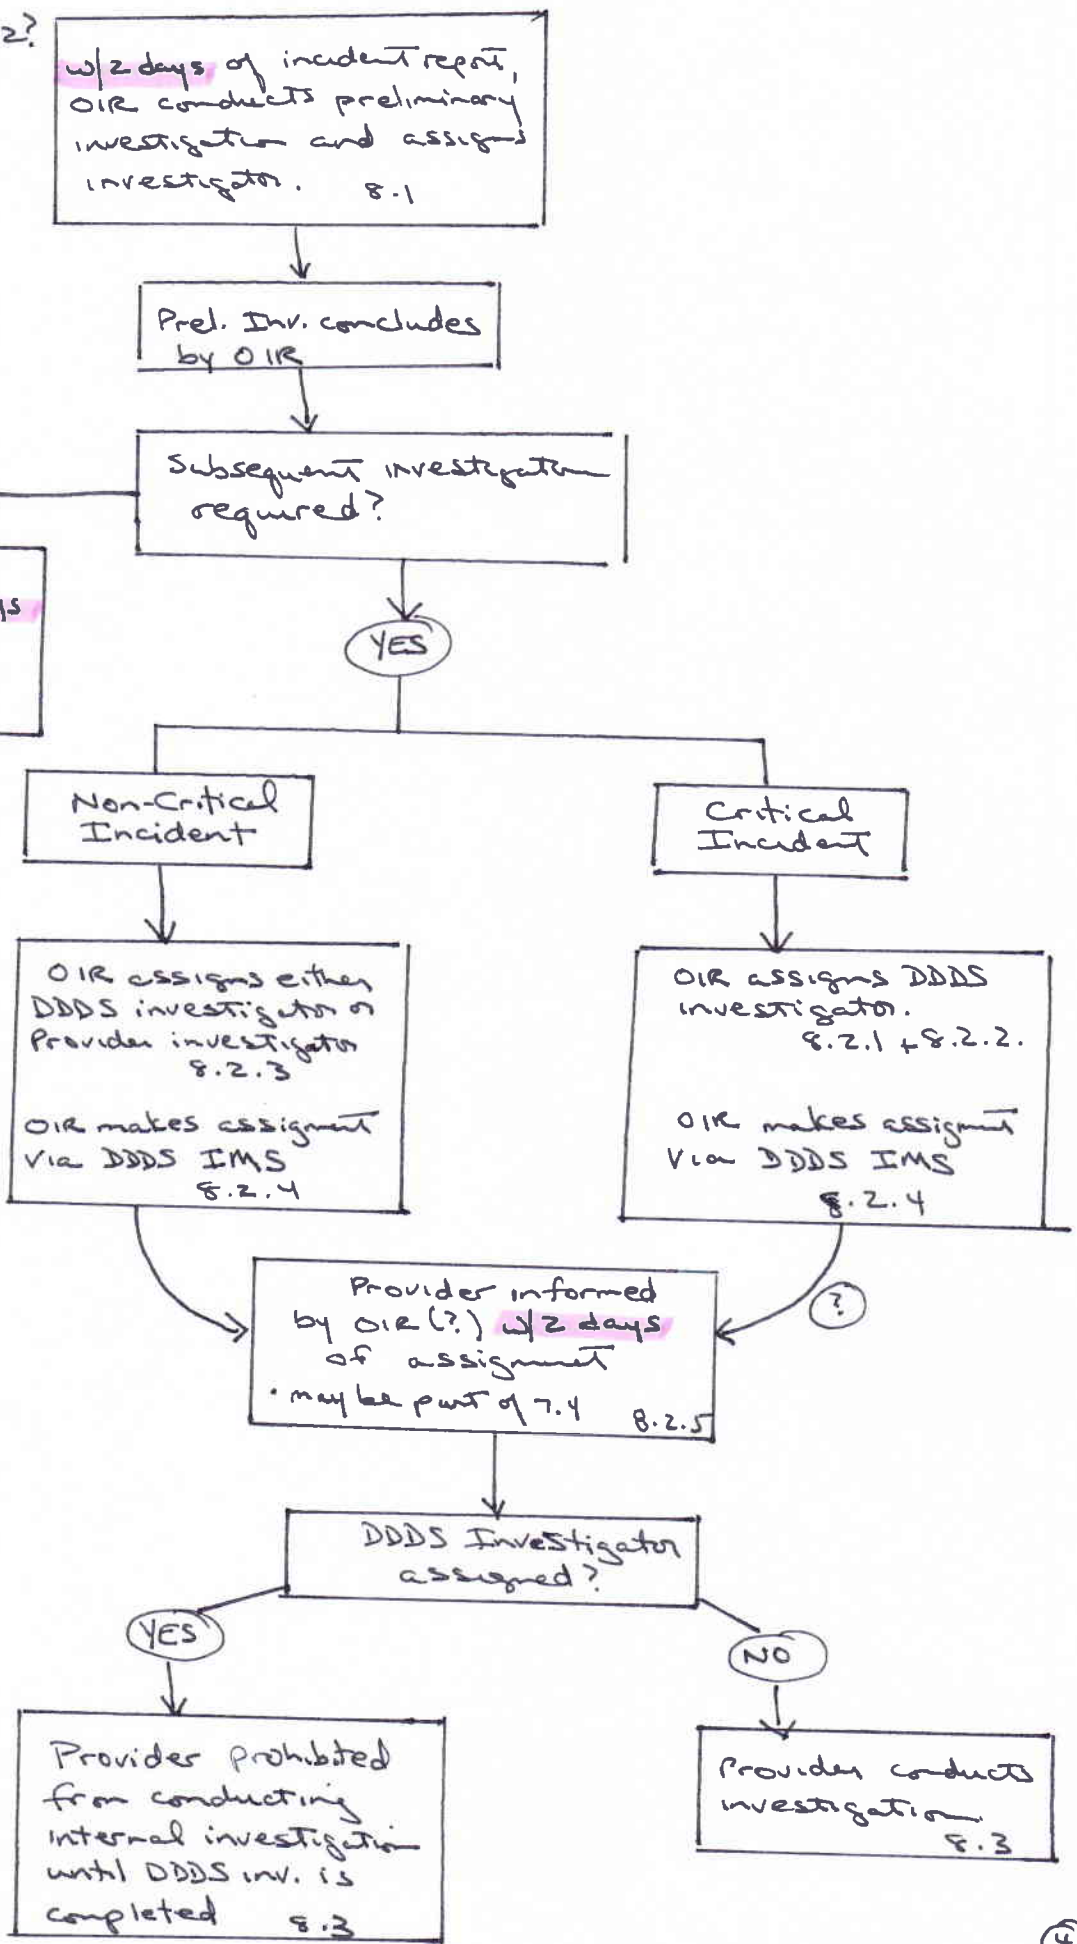 2?
w/2 days of incident report,
OIR conducts preliminary
investigation and assigns
investigator. 8.1
Prel. Inv. concludes
by OIR
Subsequent investigation
required?
YES
Non-Critical
Incident
Critical
Incident
OIR assigns either
DDDS investigator or
Provider investigator
8.2.3
OIR makes assignment
via DDDS IMS
8.2.4
OIR assigns DDDS
investigator.
8.2.1 + 8.2.2.
OIR makes assignment
via DDDS IMS
8.2.4
Provider informed
by OIR (?) w/2 days
of assignment
• may be part of 7.4 8.2.5
?
DDDS Investigator
assigned?
YES
NO
Provider prohibited
from conducting
internal investigation
until DDDS inv. is
completed 8.3
Provider conducts
investigation.
8.3
4